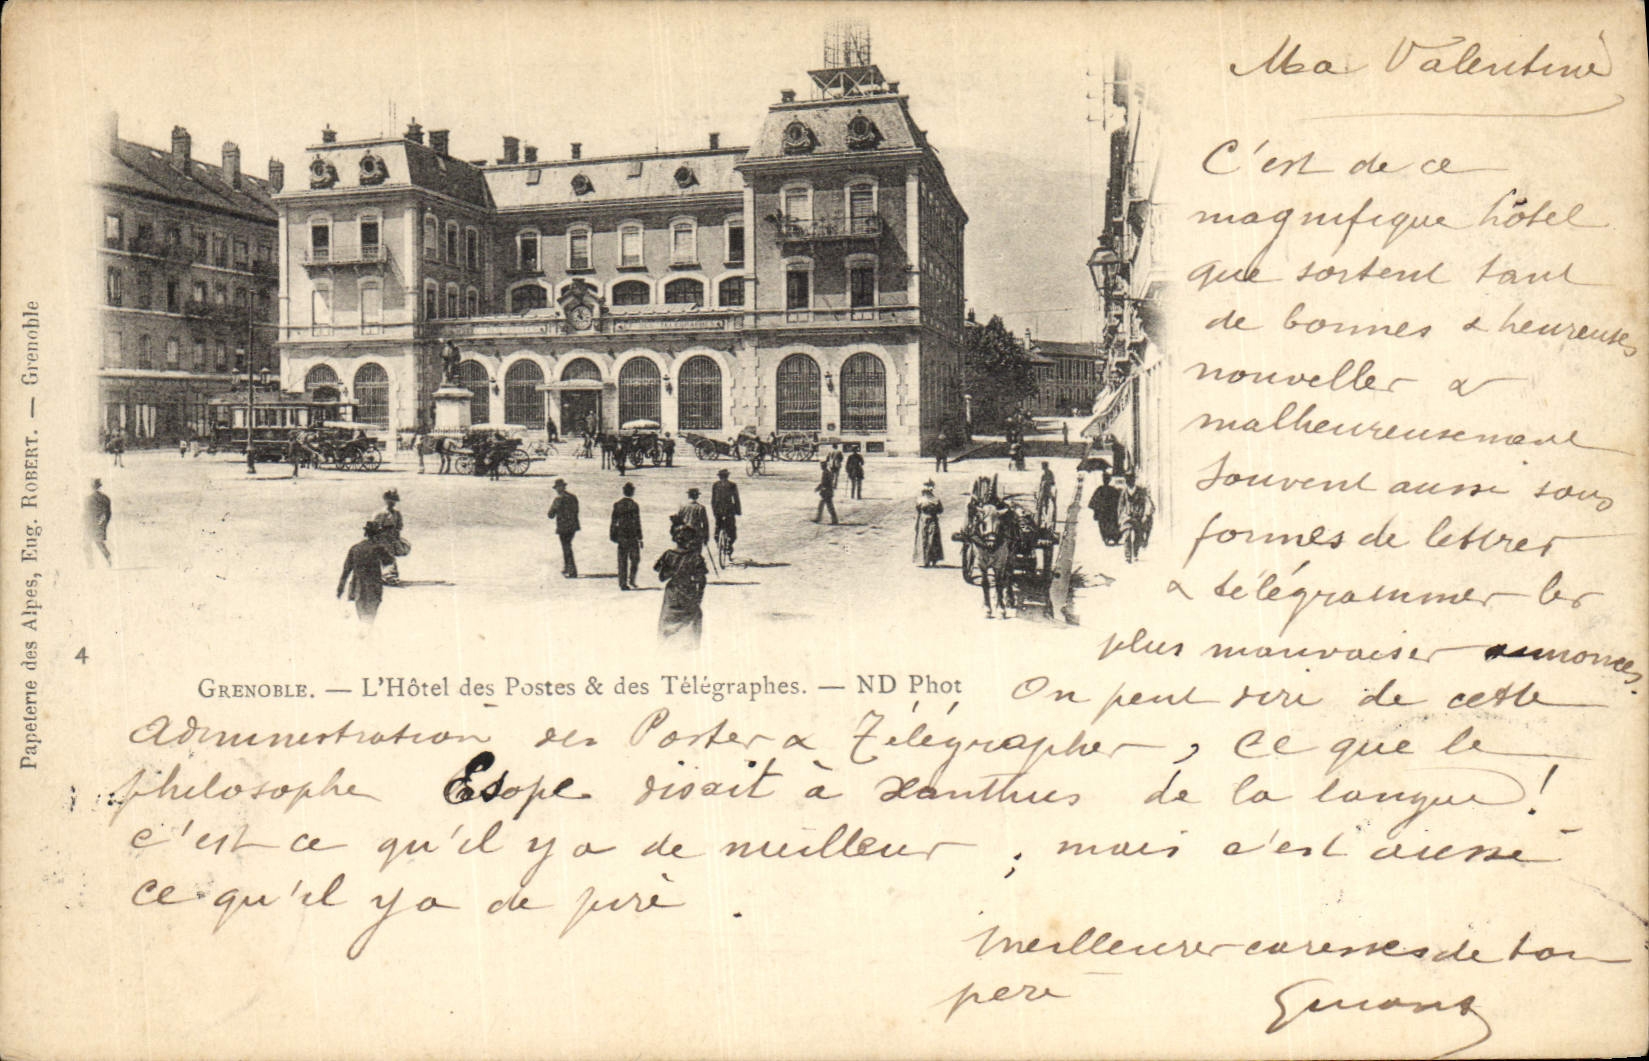 Ma Valentine
C'est de ce
magnifique hôtel
que sortent tant
de bonnes & heureuses
nouvelles &
malheureusement
souvent aussi sous
formes de lettres
& télégrammes les
plus mauvaises annonces.
On peut dire de cette
administration des Postes & Télégraphes, ce que le
philosophe Esope disait à Xanthus de la langue !
c'est ce qu'il y a de meilleur ; mais c'est aussi
ce qu'il y a de pire .
Meilleures caresses de ton
père
4
GRENOBLE. — L'Hôtel des Postes & des Télégraphes. — ND Phot
Papeterie des Alpes, Eug. ROBERT. — Grenoble